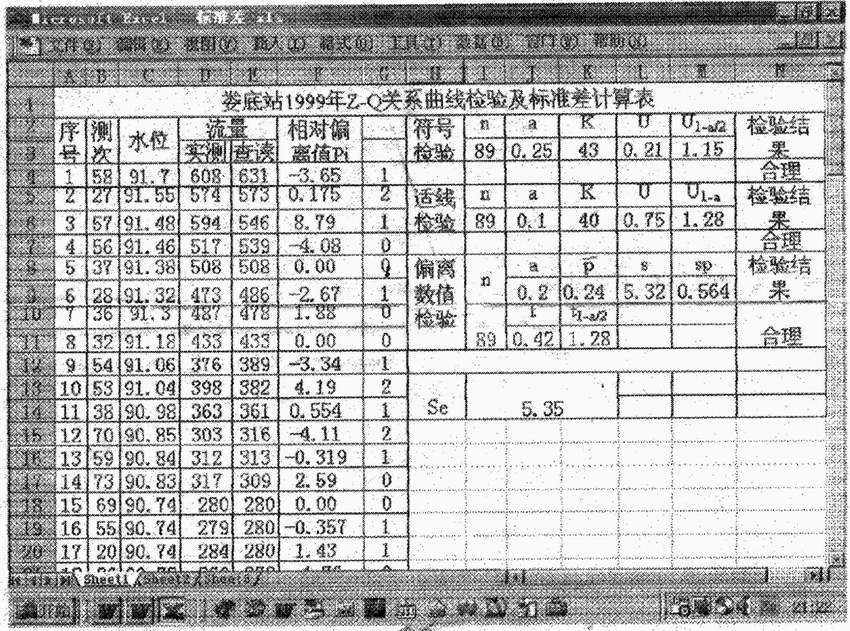 Microsoft Excel - 标准差.xls
文件(F) 编辑(E) 视图(V) 插入(I) 格式(O) 工具(T) 数据(D) 窗口(W) 帮助(H)
A B C D E F G H I J K L M N
1 娄底站1999年Z-Q关系曲线检验及标准差计算表
2 序 测 水位 流量 相对偏 符号 n a K U U1-a/2 检验结
3 号 次 实测 查读 离值Pi 检验 89 0.25 43 0.21 1.15 果
4 1 58 91.7 608 631 -3.65 1 合理
5 2 27 91.55 574 573 0.175 2 适线 n a K U U1-a 检验结
6 3 57 91.48 594 546 8.79 1 检验 89 0.1 40 0.75 1.28 果
7 4 56 91.46 517 539 -4.08 0 合理
8 5 37 91.38 508 508 0.00 0 偏离 n a p̅ s sp 检验结
9 6 28 91.32 473 486 -2.67 1 数值 0.2 0.24 5.32 0.564 果
10 7 36 91.3 487 478 1.88 0 检验 t1-a/2
11 8 32 91.18 433 433 0.00 0 89 0.42 1.28 合理
12 9 54 91.06 376 389 -3.34 1
13 10 53 91.04 398 382 4.19 2 Se 5.35
14 11 38 90.98 363 361 0.554 1
15 12 70 90.85 303 316 -4.11 2
16 13 59 90.84 312 313 -0.319 1
17 14 73 90.83 317 309 2.59 0
18 15 69 90.74 280 280 0.00 0
19 16 55 90.74 279 280 -0.357 1
20 17 20 90.74 284 280 1.43 1
Sheet1 Sheet2 Sheet3
开始 21:22